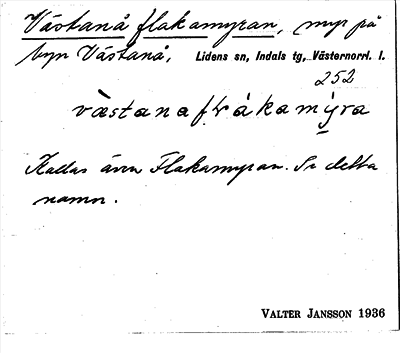 Västanå flakamyran, myr på
byn Västanå, Lidens sn, Indals tg, Västernorrl. l.
252
västanaflákamýra
Kallas även Flakamyran. Se detta
namn.
VALTER JANSSON 1936